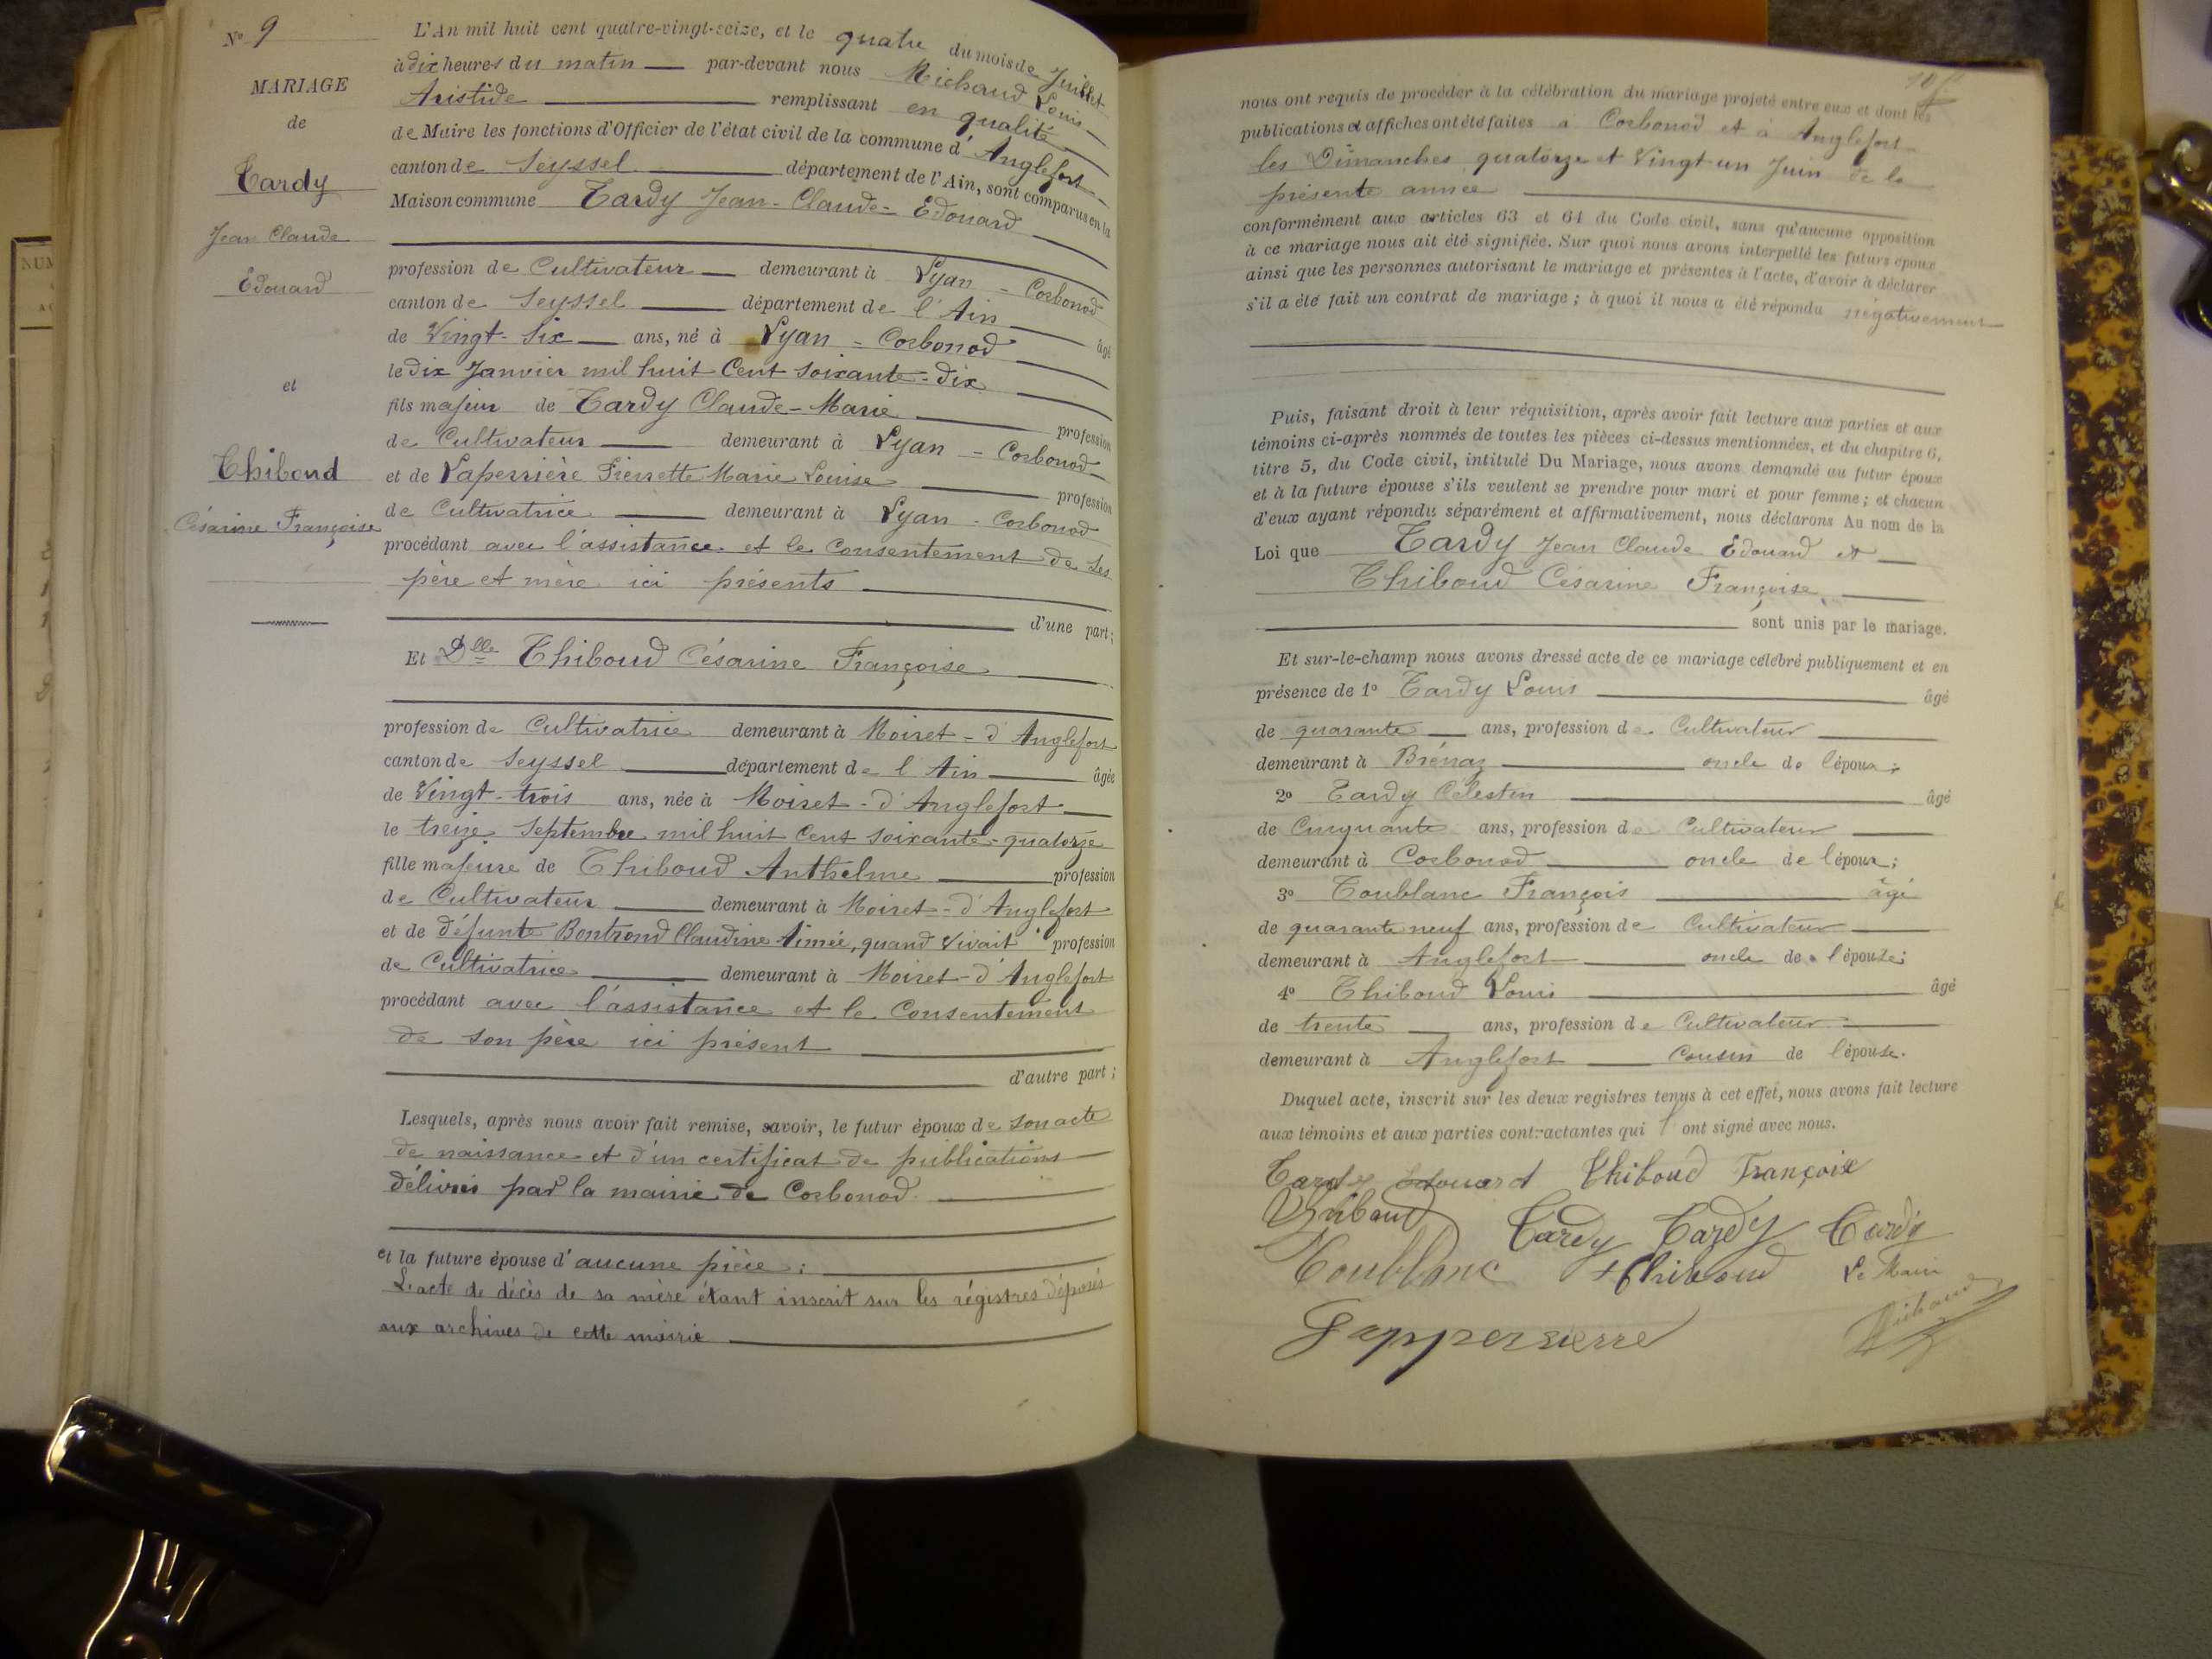 N° 9
MARIAGE
de
Tardy
Jean Claude
Edouard
et
Thiboud
Césarine Françoise
L'An mil huit cent quatre-vingt-seize, et le quatre du mois de Juillet
à dix heures du matin par-devant nous Michaud Louis
Aristide remplissant en qualité
de Maire les fonctions d'Officier de l'état civil de la commune d'Anglefort
canton de Seyssel département de l'Ain, sont comparus en la
Maison commune Tardy Jean-Claude-Edouard
profession de Cultivateur demeurant à Lyan-Corbonod
canton de Seyssel département de l'Ain âgé
de Vingt-Six ans, né à Lyan-Corbonod
le dix Janvier mil huit Cent soixante-dix
fils majeur de Tardy Claude-Marie profession
de Cultivateur demeurant à Lyan-Corbonod
et de Laperrière Pierrette Marie Louise profession
de Cultivatrice demeurant à Lyan-Corbonod
procédant avec l'assistance et le Consentement de ses
père et mère ici présents
d'une part;
Et Dlle Thiboud Césarine Françoise
profession de Cultivatrice demeurant à Moiret-d'Anglefort
canton de Seyssel département de l'Ain âgée
de Vingt-trois ans, née à Moiret-d'Anglefort
le treize Septembre mil huit Cent soixante-quatorze
fille majeure de Thiboud Anthelme profession
de Cultivateur demeurant à Moiret-d'Anglefort
et de défunte Bontrond Claudine Aimée, quand vivait profession
de Cultivatrice demeurant à Moiret-d'Anglefort
procédant avec l'assistance et le Consentement
de son père ici présent
d'autre part;
Lesquels, après nous avoir fait remise, savoir, le futur époux de son acte
de naissance et d'un certificat de publications
délivrés par la mairie de Corbonod
et la future épouse d'aucune pièce;
L'acte de décès de sa mère étant inscrit sur les régistres déposés
aux archives de cette mairie
nous ont requis de procéder à la célébration du mariage projeté entre eux et dont les
publications et affiches ont été faites à Corbonod et à Anglefort
les Dimanches quatorze et Vingt un Juin de la
présente année
conformément aux articles 63 et 64 du Code civil, sans qu'aucune opposition
à ce mariage nous ait été signifiée. Sur quoi nous avons interpellé les futurs époux
ainsi que les personnes autorisant le mariage et présentes à l'acte, d'avoir à déclarer
s'il a été fait un contrat de mariage; à quoi il nous a été répondu négativement
Puis, faisant droit à leur réquisition, après avoir fait lecture aux parties et aux
témoins ci-après nommés de toutes les pièces ci-dessus mentionnées, et du chapitre 6,
titre 5, du Code civil, intitulé Du Mariage, nous avons demandé au futur époux
et à la future épouse s'ils veulent se prendre pour mari et pour femme; et chacun
d'eux ayant répondu séparément et affirmativement, nous déclarons Au nom de la
Loi que Tardy Jean Claude Edouard et
Thiboud Césarine Françoise
sont unis par le mariage.
Et sur-le-champ nous avons dressé acte de ce mariage célébré publiquement et en
présence de 1° Tardy Louis âgé
de quarante ans, profession de Cultivateur
demeurant à Brénaz oncle de l'époux;
2° Tardy Célestin âgé
de Cinquante ans, profession de Cultivateur
demeurant à Corbonod oncle de l'époux;
3° Toublanc François âgé
de quarante neuf ans, profession de Cultivateur
demeurant à Anglefort oncle de l'épouse;
4° Thiboud Louis âgé
de trente ans, profession de Cultivateur
demeurant à Anglefort Cousin de l'épouse.
Duquel acte, inscrit sur les deux registres tenus à cet effet, nous avons fait lecture
aux témoins et aux parties contractantes qui l'ont signé avec nous.
Tardy Edouard Thiboud Françoise
Thiboud Tardy Tardy Tardy
Toublanc Thiboud Le Maire
Lapperrierre
Michaud